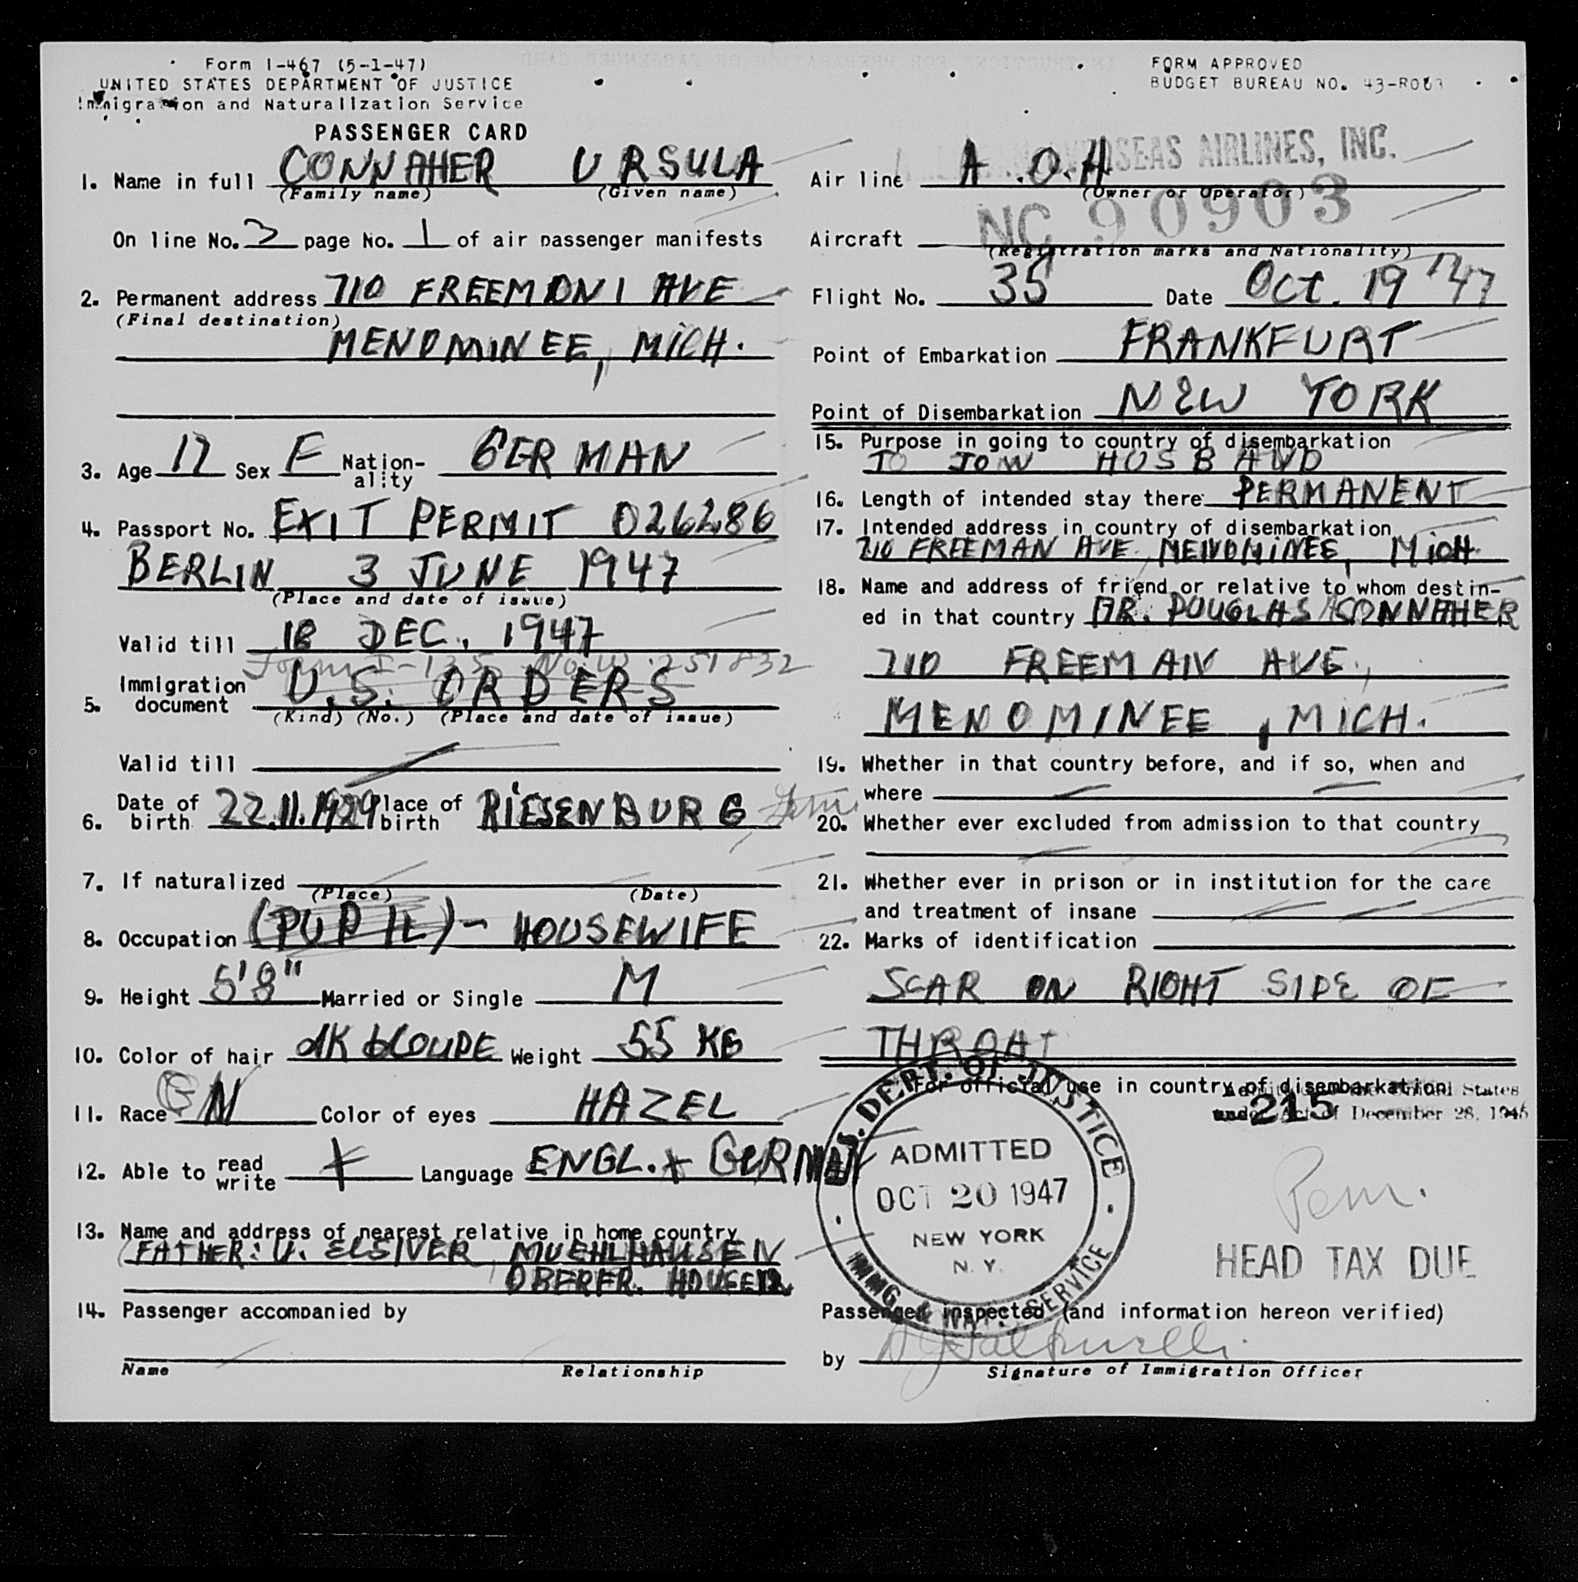 Form I-467 (5-1-47)
UNITED STATES DEPARTMENT OF JUSTICE
Immigration and Naturalization Service
PASSENGER CARD
FORM APPROVED
BUDGET BUREAU NO. 43-R083
1. Name in full CONNAHER URSULA
(Family name) (Given name)
On line No. 2 page No. 1 of air passenger manifests
2. Permanent address 710 FREEMONI AVE
(Final destination)
MENOMINEE, MICH.
3. Age 17 Sex F Nation-ality GERMAN
4. Passport No. EXIT PERMIT 026286
BERLIN 3 JUNE 1947
(Place and date of issue)
Valid till 18 DEC. 1947
Form I-135 No. 251832
5. Immigration document U.S. ORDERS
(Kind) (No.) (Place and date of issue)
Valid till
6. Date of birth 22.11.1929 Place of birth RIESENBURG
7. If naturalized
(Place) (Date)
8. Occupation (PUPIL) - HOUSEWIFE
9. Height 5'8" Married or Single M
10. Color of hair dK bLOUDE Weight 55 KG
11. Race Color of eyes HAZEL
12. Able to read write + Language ENGL. + GERMAN
13. Name and address of nearest relative in home country
FATHER: U. ELSNER, MUEHLHAUSEN
14. Passenger accompanied by
Name Relationship
OVERSEAS AIRLINES, INC.
Air line A.O.A
(Owner or Operator)
Aircraft NC 90903
(Registration marks and Nationality)
Flight No. 35 Date Oct. 19 '47
Point of Embarkation FRANKFURT
Point of Disembarkation NEW YORK
15. Purpose in going to country of disembarkation
TO JOIN HUSBAND
16. Length of intended stay there PERMANENT
17. Intended address in country of disembarkation
710 FREEMAN AVE. MENOMINEE, MICH.
18. Name and address of friend or relative to whom destin-
ed in that country DR. DOUGLAS CONNAHER
710 FREEMAN AVE,
MENOMINEE, MICH.
19. Whether in that country before, and if so, when and
where
20. Whether ever excluded from admission to that country
21. Whether ever in prison or in institution for the care
and treatment of insane
22. Marks of identification
SCAR ON RIGHT SIDE OF
THROAT
For official use in country of disembarkation
Admitted United States
215
under Act of December 28, 1945
U.S. DEPT. OF JUSTICE
ADMITTED
OCT 20 1947
NEW YORK
N.Y.
IMMG. & NAT. SERVICE
Perm.
HEAD TAX DUE
Passenger inspected (and information hereon verified)
by
Signature of Immigration Officer